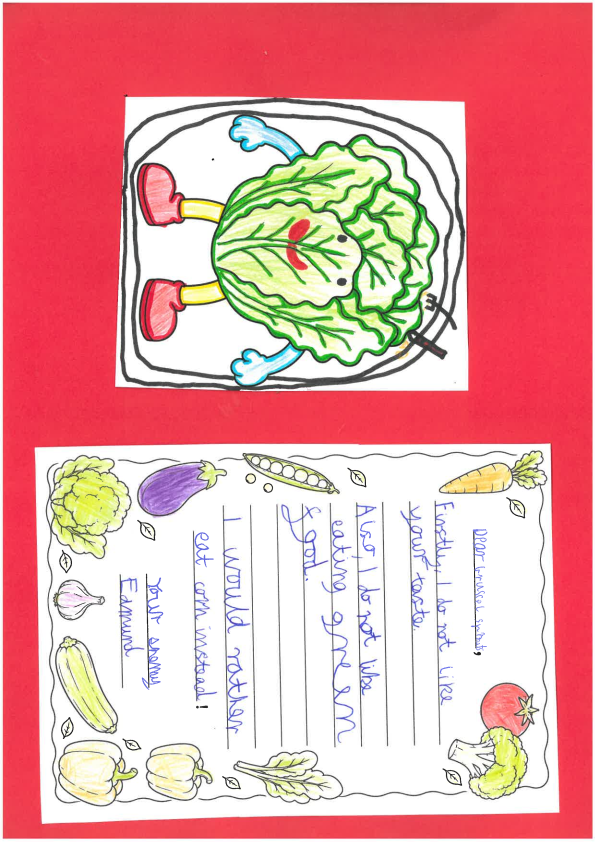 Dear brussel sprout,
Firstly, I do not like
your taste.
Also, I do not like
eating green
food.
I would rather
eat corn instead!
Your enemy
Edmund